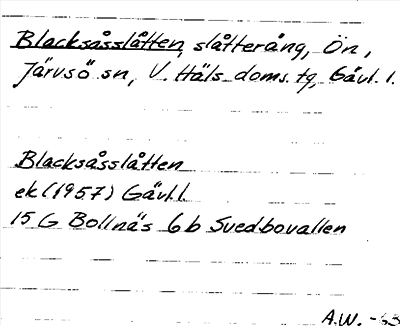 Blacksåsslåtten, slåtteräng, Ön,
Järvsö sn, V. Häls. doms. tg, Gävl. l.
Blacksåsslåtten
ek (1957) Gävl.l.
15 G Bollnäs 6 b Svedbovallen
A.W. -63